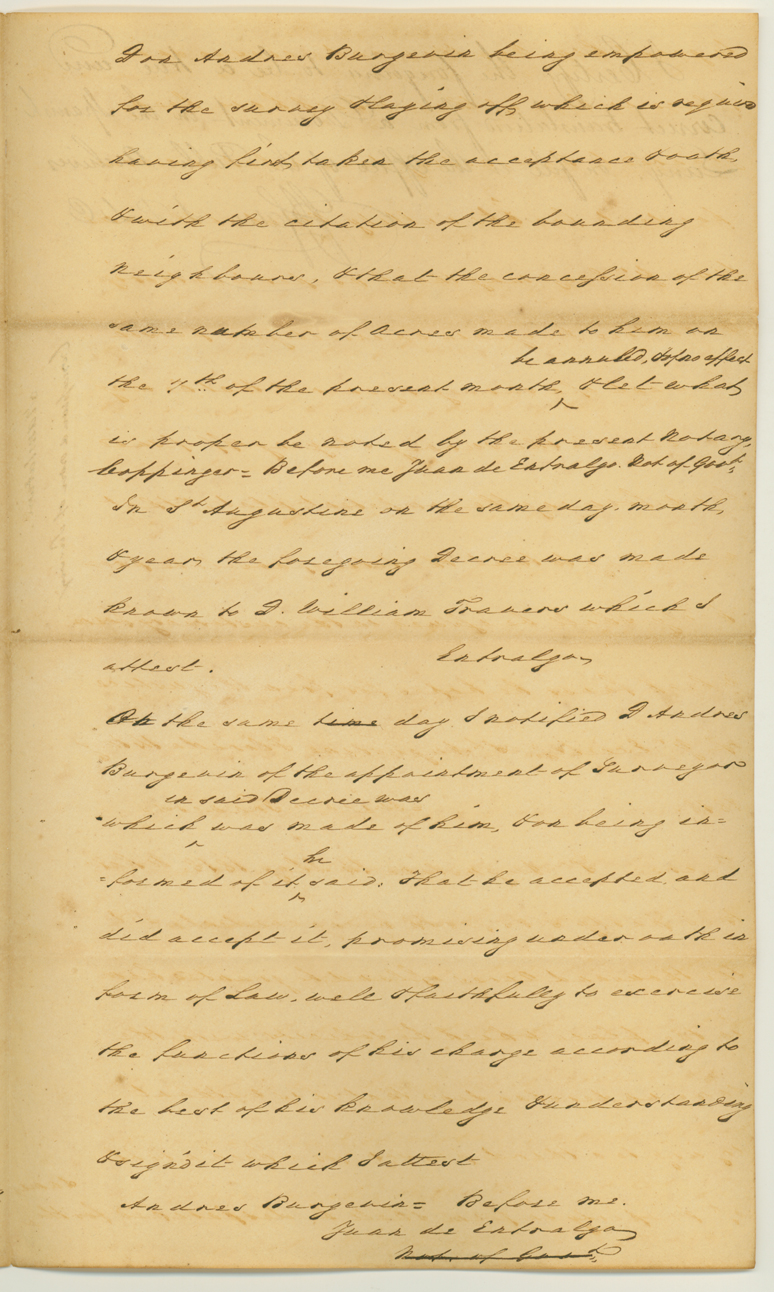 Don Andres Burgevin being empowered
for the survey & laying off, which is require
having first taken the acceptance & oath,
& with the citation of the bounding
Neighbours, & that the concession of the
same number of Acres made to him on
be annulled, & of no effect
the 9th of the present month, & let what
is proper be noted by the present Notary,
Coppinger = Before me Juan de Entralgo. Not of Govt.
In St Augustine on the same day. month,
& year, the foregoing Decree was made
known to D. William Travers which I
attest. Entralgo
On the same time day I notified D Andres
Burgevin of the appointment of Surveyor
in said Decree was
which was made of him, & on being in=
he
=formed of it said: That he accepted and
did accept it, promising under oath in
form of Law, well & faithfully to exercise
the functions of his charge according to
the best of his knowledge & understanding
& sign'd it which I attest
Andres Burgevin = Before me.
Juan de Entralgo
Not. of Govt.